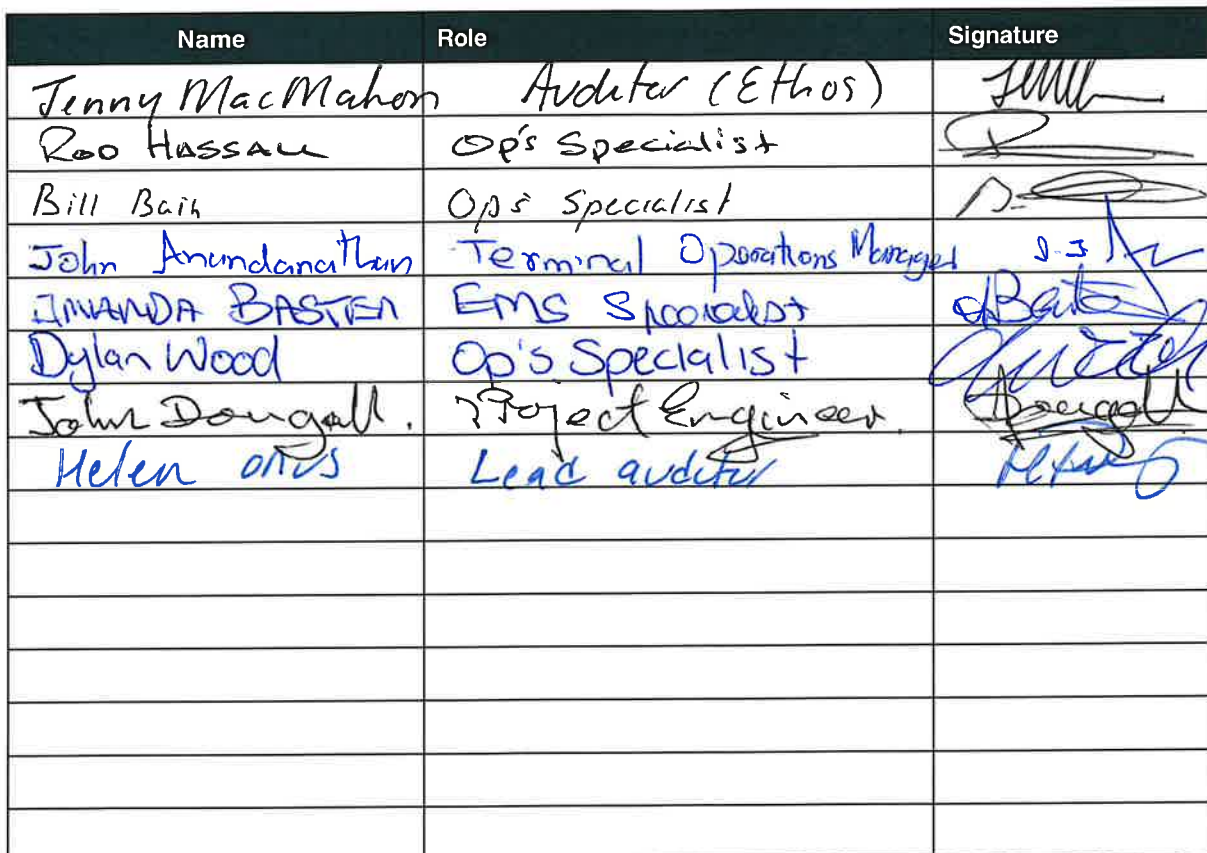 Name Role Signature
Jenny MacMahon Auditor (Ethos)
Roo HASSALL Op's Specialist
Bill Bain Op's Specialist
John Anundanathan Terminal Operations Manager
AMANDA BASTEN EMS Specialist
Dylan Wood Op's Specialist
John Dougall. Project Engineer. Dougall
Helen onus Lead auditor